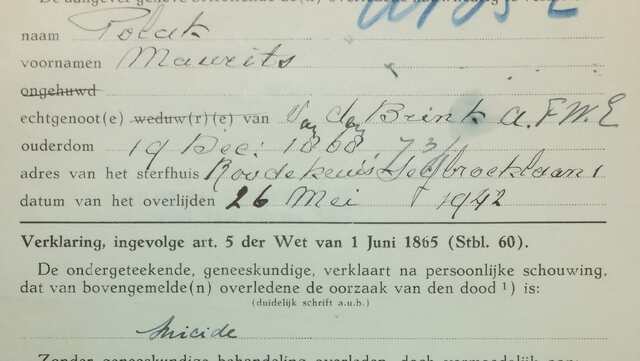 De aangever
naam Polak
voornamen Maurits
ongehuwd
echtgenoot(e) weduw(r)(e) van v. d. Brink A. F. W. E
ouderdom 19 Dec: 1868, 73 j
adres van het sterfhuis Roodekruis Segbroeklaan
datum van het overlijden 26 Mei 1942
Verklaring, ingevolge art. 5 der Wet van 1 Juni 1865 (Stbl. 60).
De ondergeteekende, geneeskundige, verklaart na persoonlijke schouwing,
dat van bovengemelde(n) overledene de oorzaak van den dood ¹) is:
(duidelijk schrift a.u.b.)
suicide
Zonder geneeskundige behandeling overleden, doch vermoedelijk